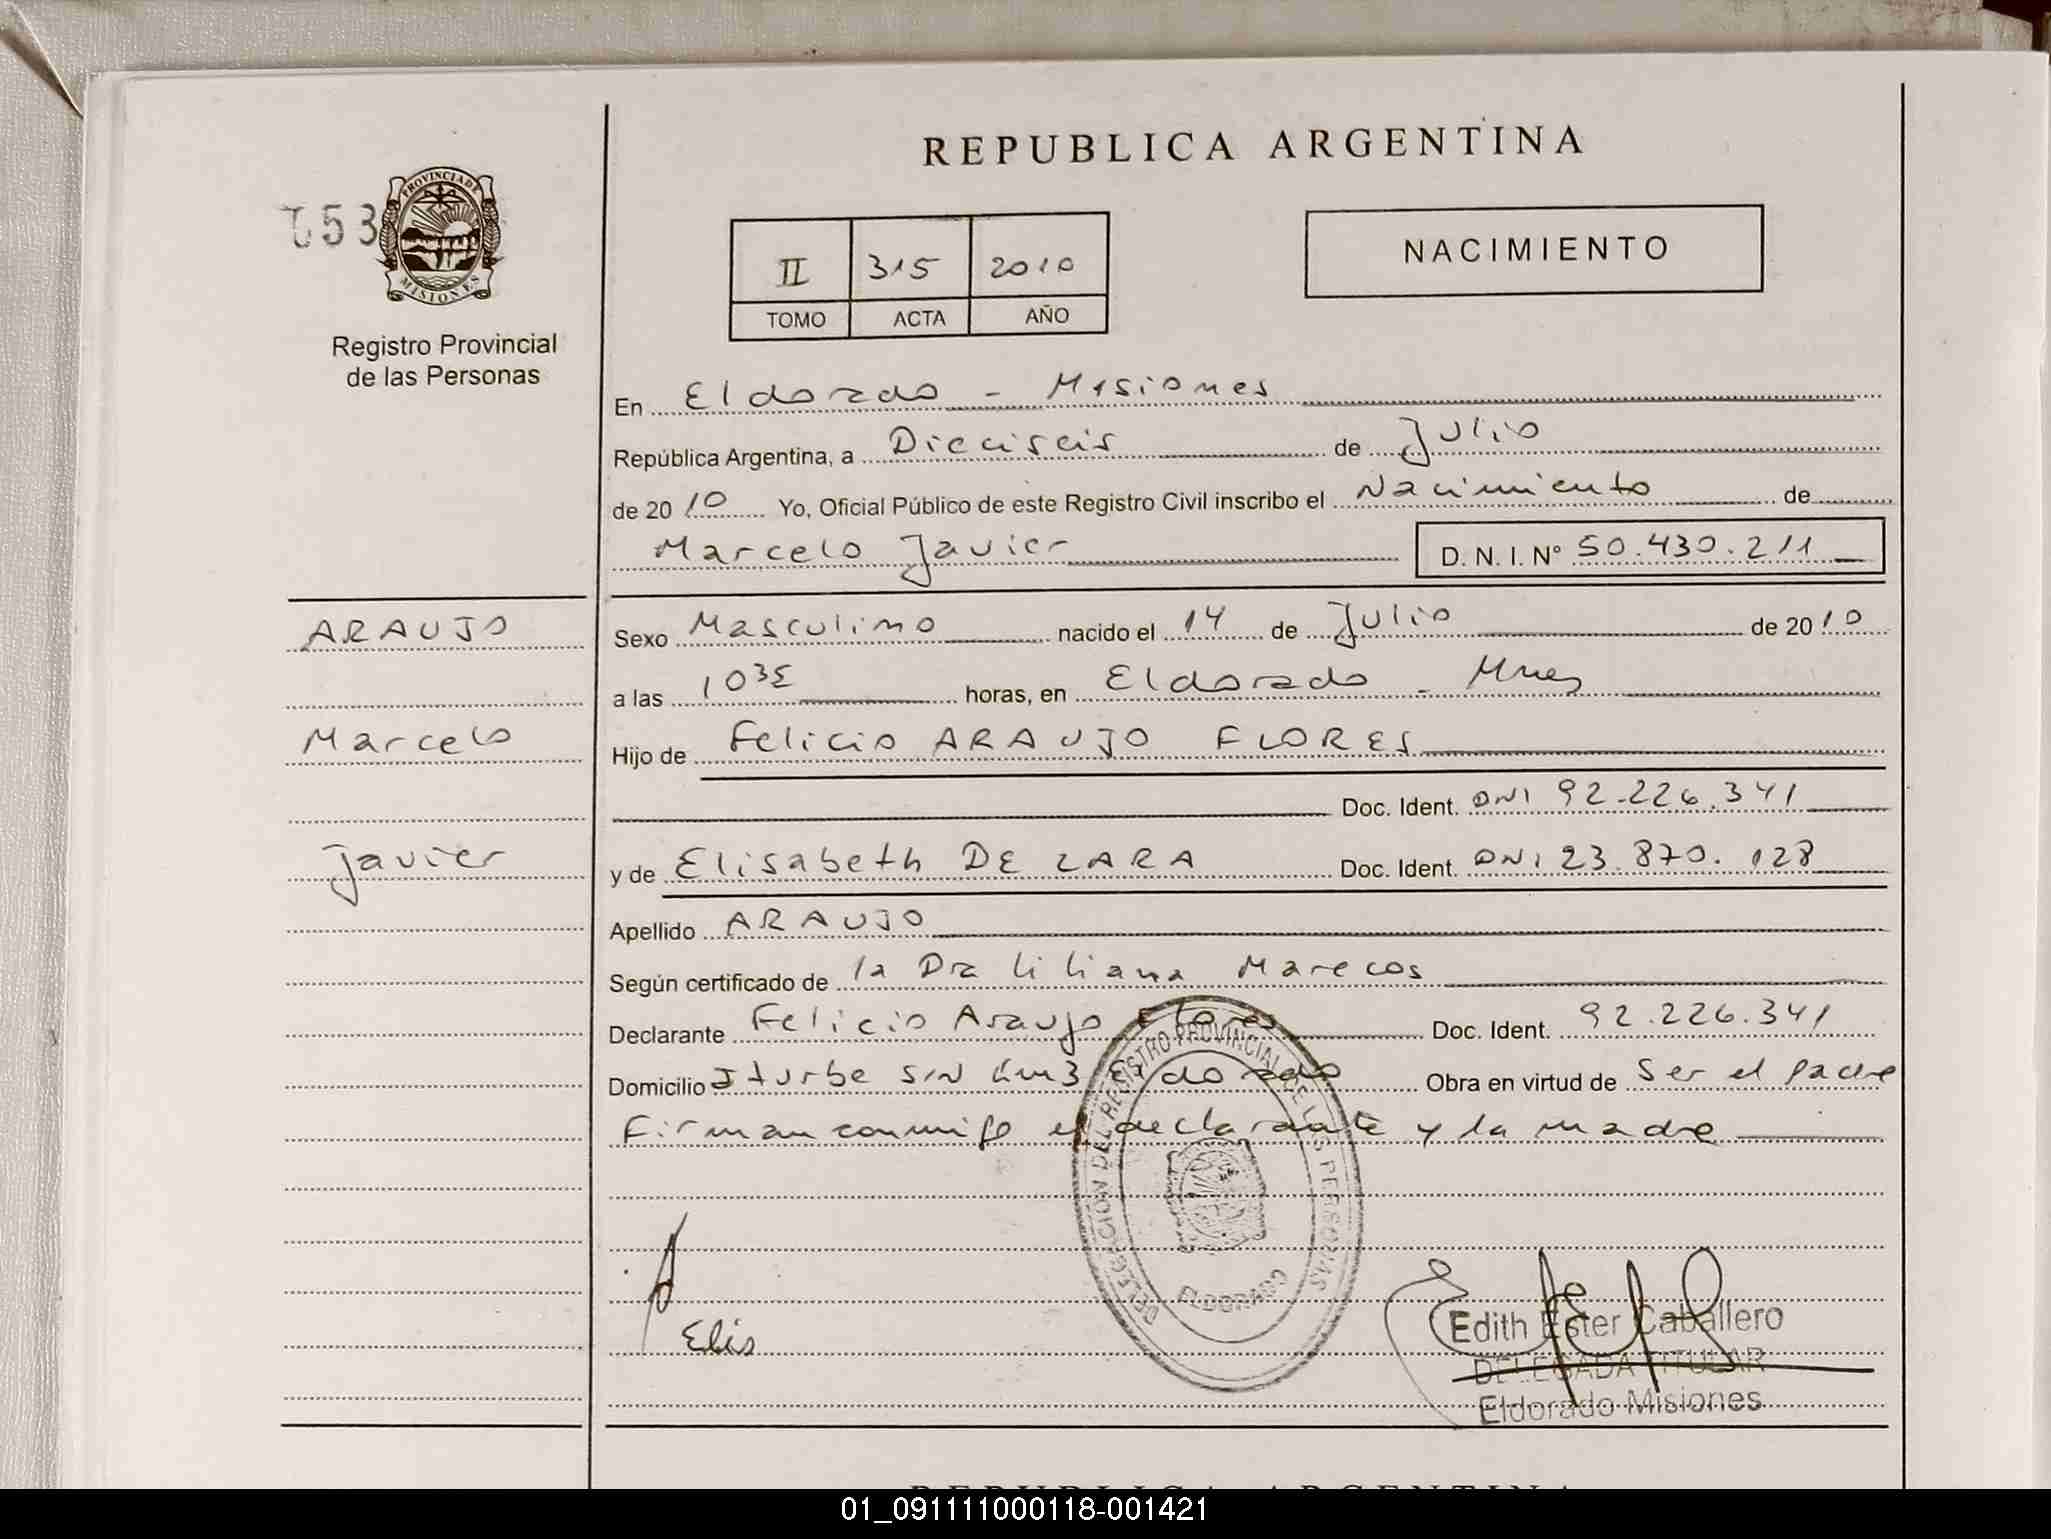 REPUBLICA ARGENTINA
153
PROVINCIA DE
MISIONES
Registro Provincial
de las Personas
II 315 2010
TOMO ACTA AÑO
NACIMIENTO
En Eldorado - Misiones
República Argentina, a Dieciseis de Julio
de 20 10 Yo, Oficial Público de este Registro Civil inscribo el Nacimiento de
Marcelo Javier D. N. I. N° 50.430.211
ARAUJO
Marcelo
Javier
Sexo Masculino nacido el 14 de Julio de 20 10
a las 10 35 horas, en Eldorado - Mnes
Hijo de Felicio ARAUJO FLORES
Doc. Ident. DNI 92.226.341
y de Elisabeth DE LARA Doc. Ident. DNI 23.870.128
Apellido ARAUJO
Según certificado de la Dra Liliana Marecos
Declarante Felicio Araujo Flores Doc. Ident. 92.226.341
Domicilio Iturbe S/N km3 Eldorado Obra en virtud de Ser el padre
Firman conmigo el declarante y la madre
DELEGACION DEL REGISTRO PROVINCIAL DE LAS PERSONAS
ELDORADO
Elis
Edith Ester Caballero
DELEGADA TITULAR
Eldorado Misiones
REPUBLICA ARGENTINA
01_091111000118-001421